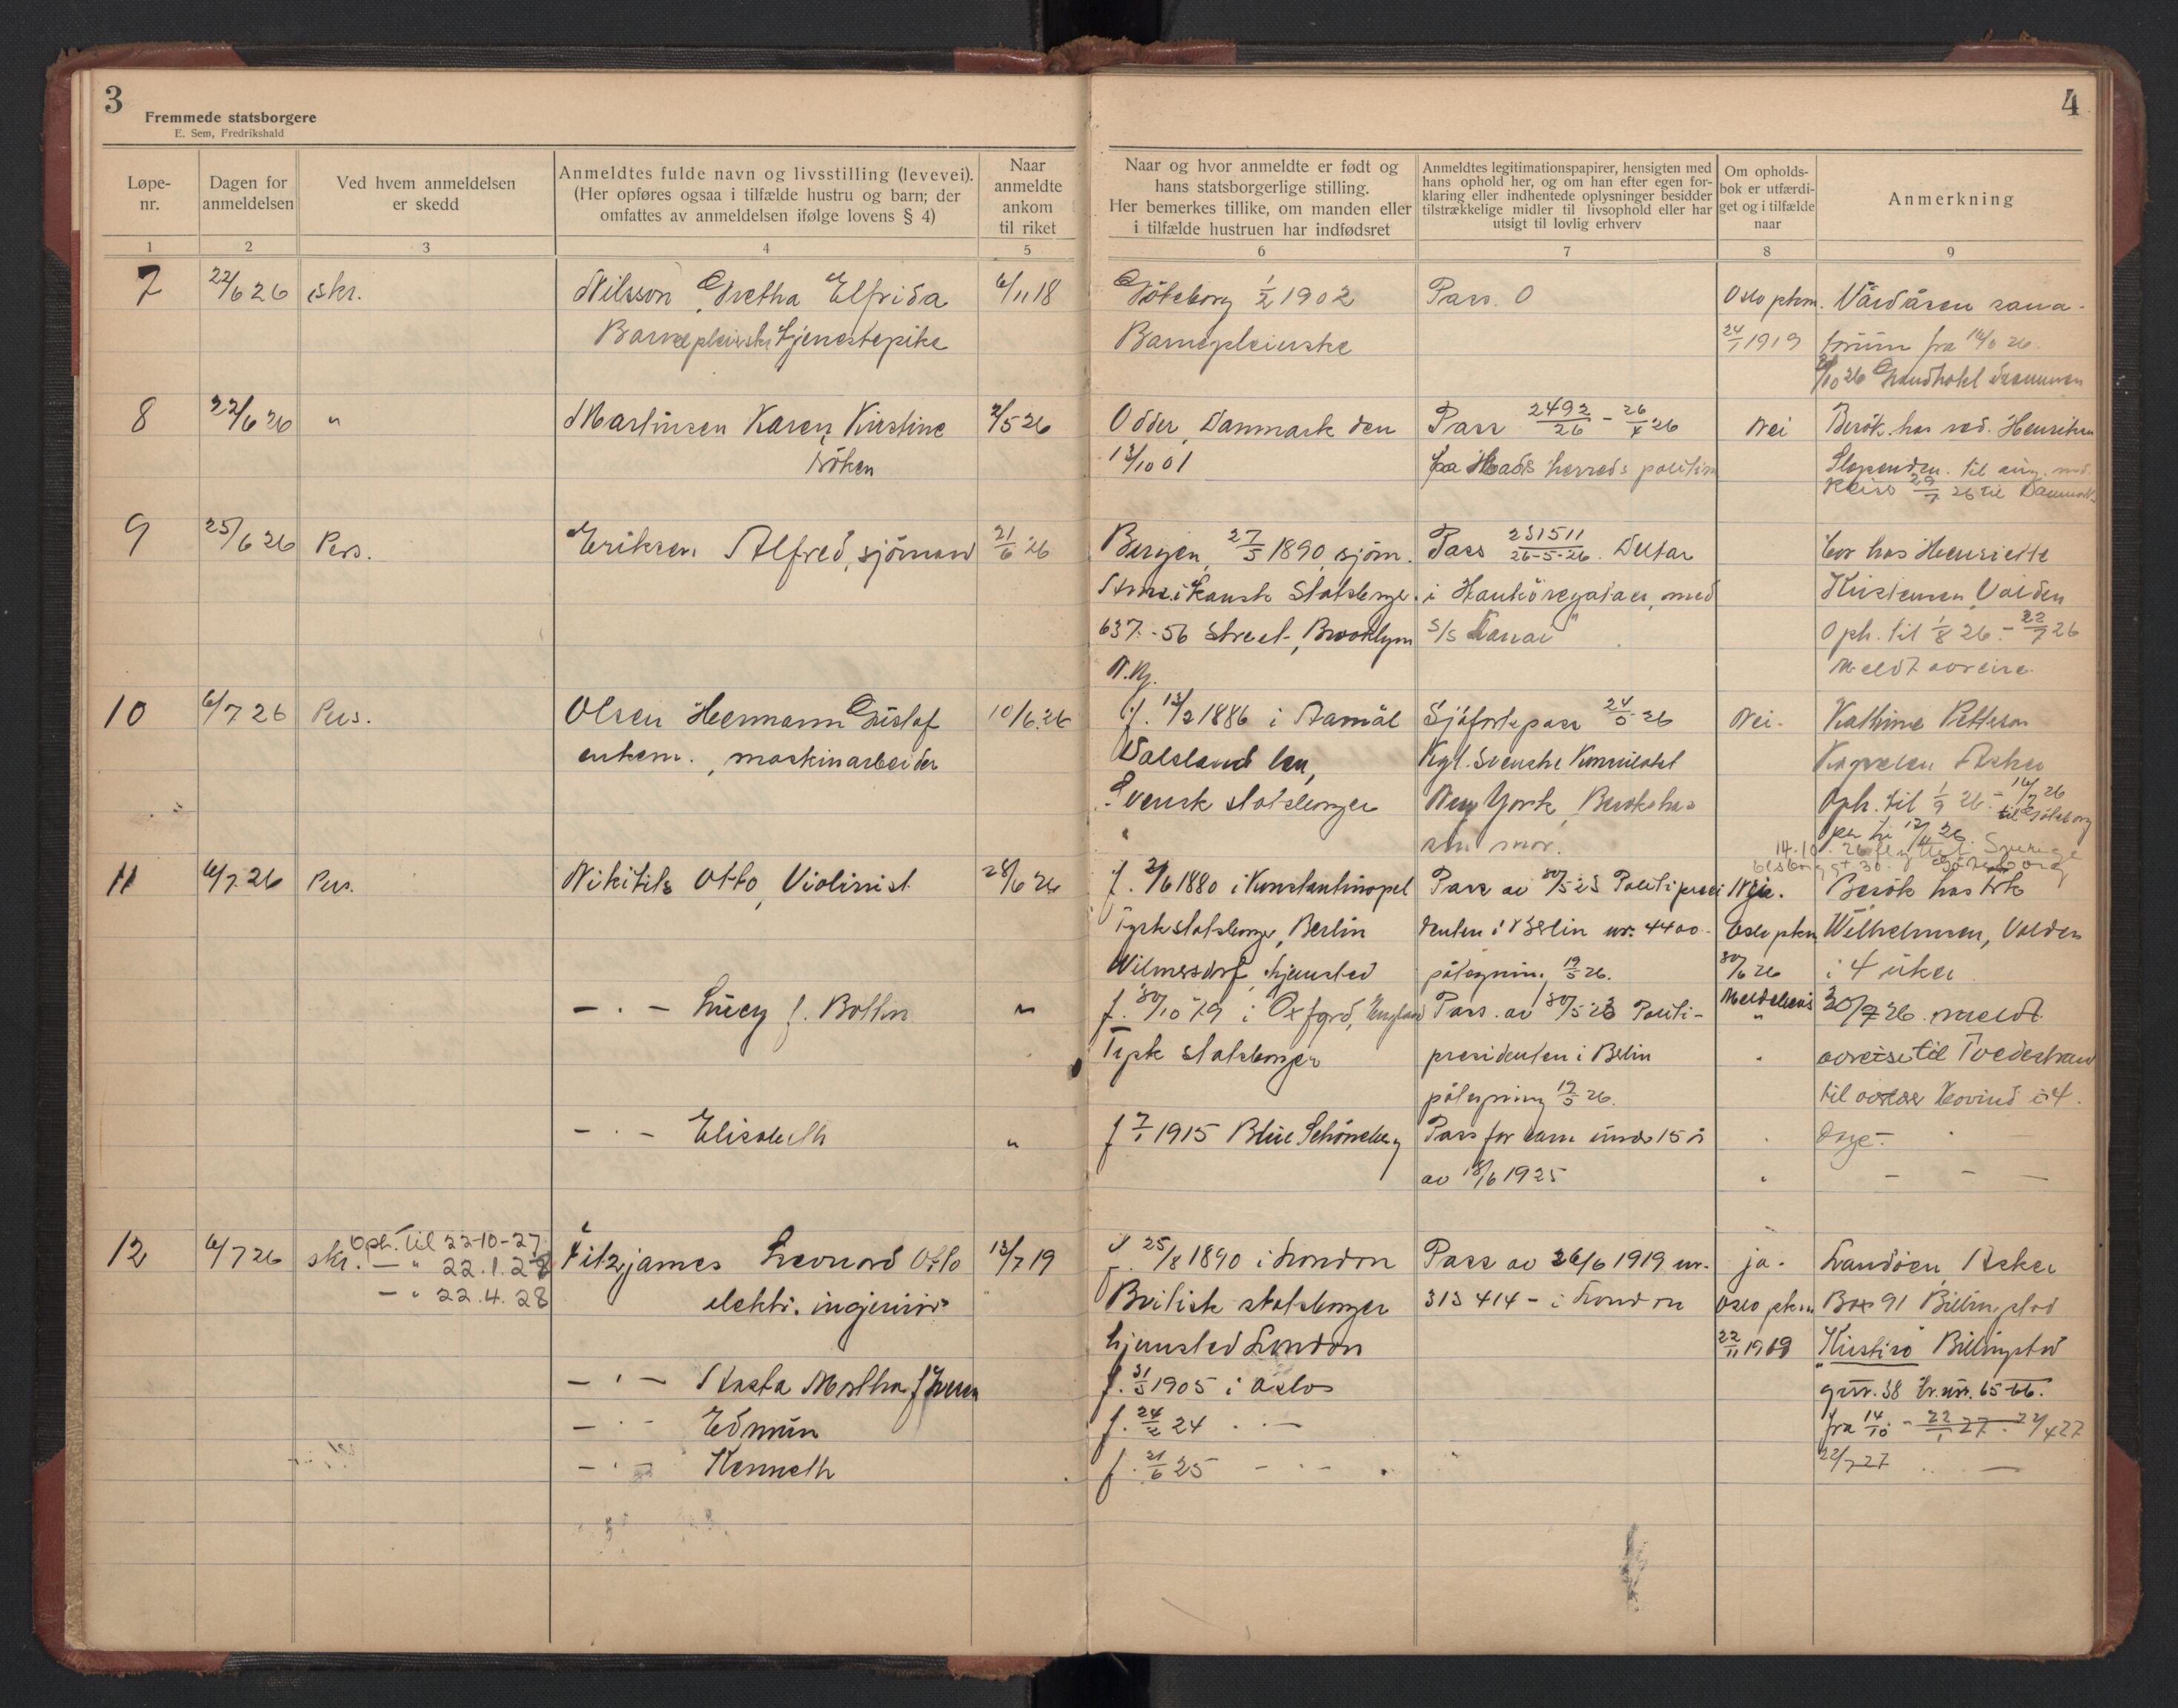 3
Fremmede statsborgere
E. Sem, Fredrikshald
4
Løpe-
nr.
Dagen for
anmeldelsen
Ved hvem anmeldelsen
er skedd
Anmeldtes fulde navn og livsstilling (levevei).
(Her opføres ogsaa i tilfælde hustru og barn; der
omfattes av anmeldelsen ifølge lovens § 4)
Naar
anmeldte
ankom
til riket
Naar og hvor anmeldte er født og
hans statsborgerlige stilling.
Her bemerkes tillike, om manden eller
i tilfælde hustruen har indfødsret
Anmeldtes legitimationspapirer, hensigten med
hans ophold her, og om han efter egen for-
klaring eller indhentede oplysninger besidder
tilstrækkelige midler til livsophold eller har
utsigt til lovlig erhverv
Om opholds-
bok er utfærdi-
get og i tilfælde
naar
Anmerkning
1 2 3 4 5 6 7 8 9
7 22/6 26 skr. Nilsson, Gretha Elfrida 6/11 18 Göteborg 1/2 1902 Pass. 0 Oslo pkm. Vårdåsen sana-
Barnepleierske tjenestepike Barnepleierske 24/1 1919 torium fra 16/6 26
/10 26 Grandhotel Drammen
8 22/6 26 " Martinsen Karen Kirstine 2/5 26 Odder, Danmark den Pass 2492/26 - 26/4 26 Nei Besøk hos red. Henriksen
frøken 13/10 01 fra Hads herreds politim Slependen. til aug. md.
Reise 29/7 26 til Danmark
9 25/6 26 Pers. Eriksen Alfred, sjömand 21/6 26 Bergen, 27/5 1890, sjöm. Pass 231511/26-5-26. Deltar bor hos Henriette
Amerikansk Statsborger. i Hankøregataen, med Kristensen, Valden
637.-56 Street, Brooklyn s/s Oph. til 1/8 26. - 22/7 26
N.Y. meldt avreise.
10 6/7 26 Pers. Olsen Hermann Gustaf 10/6.26 f. 13/2 1886 i Aamål Sjöfartspass 24/5 26 Nei. Kathrine Petterson
enkem., maskinarbeider Dalsland len, Kgl. Svenske Konsulatet Asker
Svensk statsborger New York, Besøk hos Oph. til 1/9 26. - 16/7 26
til Göteborg
sin mor.
14.10.26 til Sverige
Göteborg
11 6/7 26 Pers. Nikitits Otto, Violinist 28/6 26 f. 2/6 1880 i Konstantinopel Pass av 30/5 23 Politipresi Nei. Besøk hos frk
Tysk statsborger, Berlin denten i Berlin nr. 4400. Oslo pkm Wilhelmsen, Valden
Wilmersdorf, hjemsted påtegning 19/5 26. 30/6 26 i 4 uker
- " - Lucy f. Botten " f. 30/10 79 i Oxford, England Pass. av 30/5 23 Politi- Meldebevis 30/7 26. meldt.
Tysk statsborger presidenten i Berlin " avreise til Tvedestrand
påtegning 19/5 26. til Hovind i 4.
- " - Elisabeth " f 7/1 1915 Berlin Schöneberg Pass for barn under 15 år dage.
av 18/6 1925 "
12 6/7 26 skr. Oph. til 22-10-27 Fitzjames Leonard Otto 13/7 19 f. 25/8 1890 i London Pass av 26/6 1919 nr. ja. Landöen, Asker
- " 22.1.28 elektr. ingeniör Britisk statsborger 313414 - i London Oslo pkm Box 91 Billingstad
- " 22.4.28 hjemsted London 22/11 1919 "Kristiro" Billingstad
- " - Aasta Martha f. f. 31/5 1905 i Oslo gnr. 38 br.nr. 65-66.
- " - Edmun f. 24/2 24 - " - fra 14/10 - 22/1 27. 22/4 27
- " - Kenneth f. 21/6 25 - " - 22/7 27